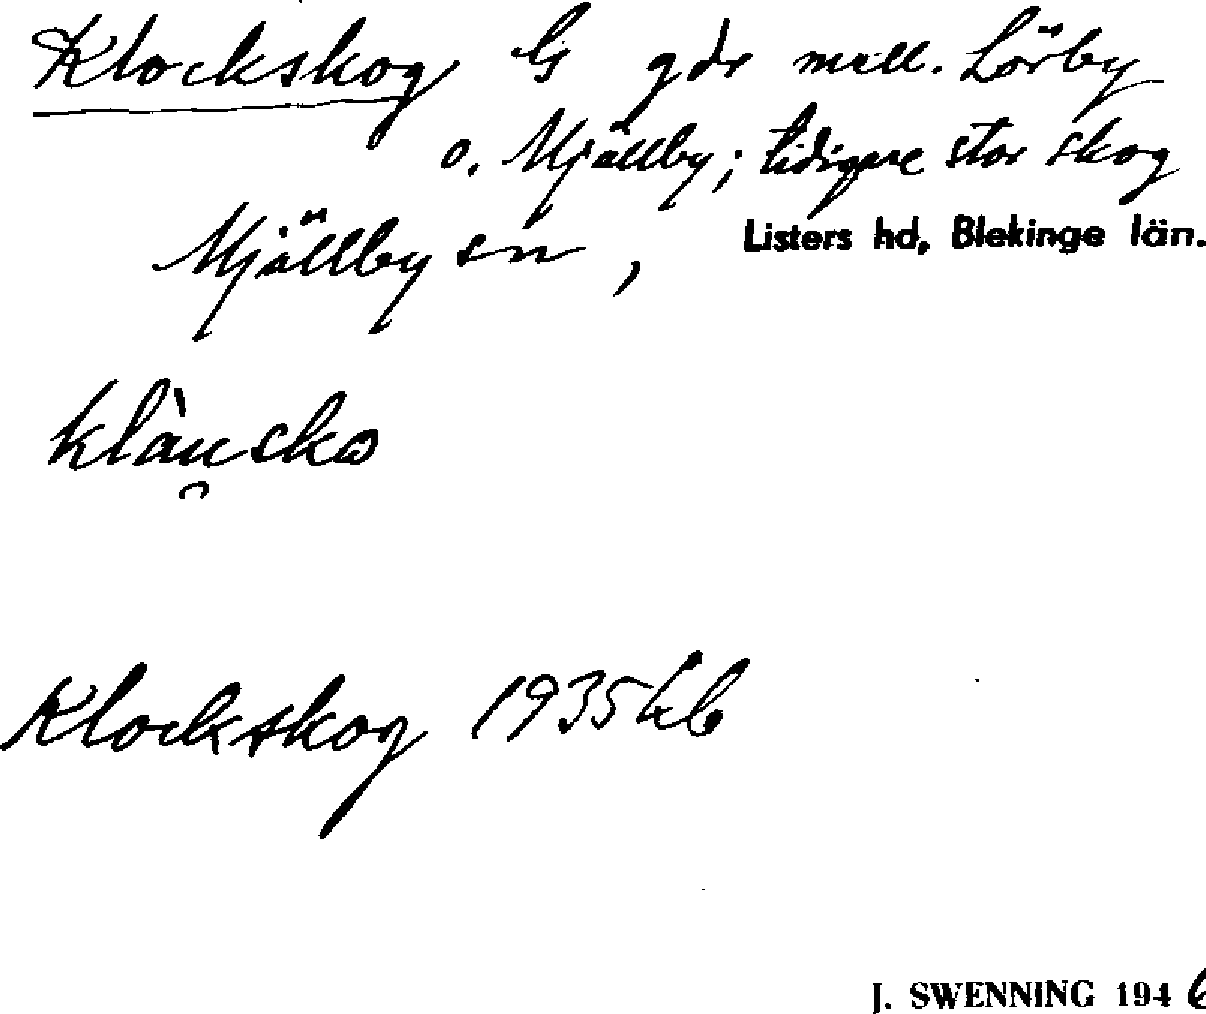 Klockskog G gdr mell. Lörby
o. Mjällby; tidigare stor skog
Mjällby sn, Listers hd, Blekinge län.
klàu̯sko
Klockskog 1935 kb
J. SWENNING 1946